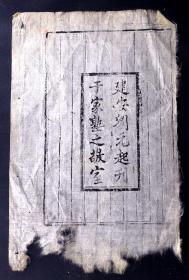 建安刘元起刊
于家塾之敬室